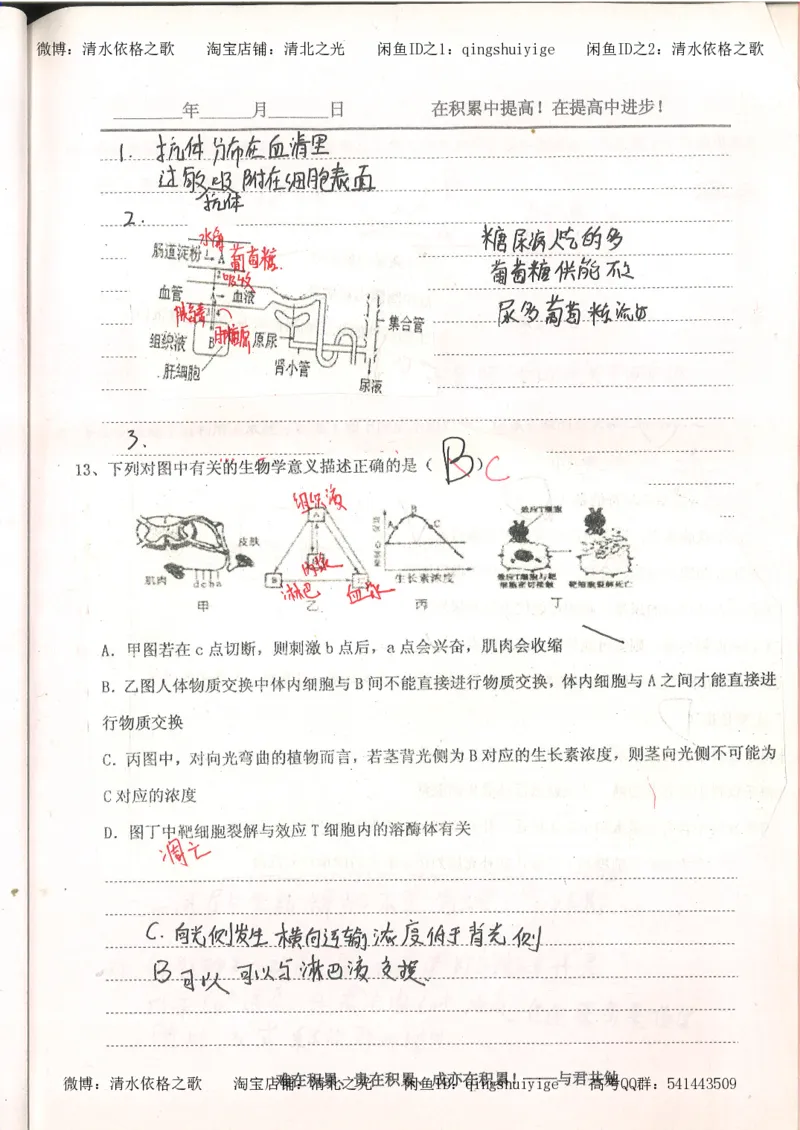 微博：清水依格之歌 淘宝店铺：清北之光 闲鱼ID之1：qingshuiyige 闲鱼ID之2：清水依格之歌
年 月 日 在积累中提高！在提高中进步！
1. 抗体分布在血清里
过敏吸附在细胞表面
抗体
2.
糖尿病吃的多
葡萄糖供能不
尿多葡萄糖流
水解
肠道淀粉 A 葡萄糖
吸收
血管 A 血液
胰岛素
集合管
组织液 B 肝糖原 原尿
肝细胞 肾小管
尿液
3.
13、下列对图中有关的生物学意义描述正确的是（B）C
皮肤
肌肉 d c b a
甲
组织液
A
内
B 淋巴 C 血浆
乙
A B C
生长素浓度
丙
效应T细胞
效应T细胞与靶细胞密切接触 靶细胞裂解死亡
丁
A．甲图若在c点切断，则刺激b点后，a点会兴奋，肌肉会收缩
B．乙图人体物质交换中体内细胞与B间不能直接进行物质交换，体内细胞与A之间才能直接进
行物质交换
C．丙图中，对向光弯曲的植物而言，若茎背光侧为B对应的生长素浓度，则茎向光侧不可能为
C对应的浓度
D．图丁中靶细胞裂解与效应T细胞内的溶酶体有关
凋亡
C. 向光侧发生横向运输浓度低于背光侧
B 可以 可以与淋巴液交换
难在积累，贵在积累，成亦在积累！——与君共勉
微博：清水依格之歌 淘宝店铺：清北之光 闲鱼ID：qingshuiyige 高考QQ群：541443509